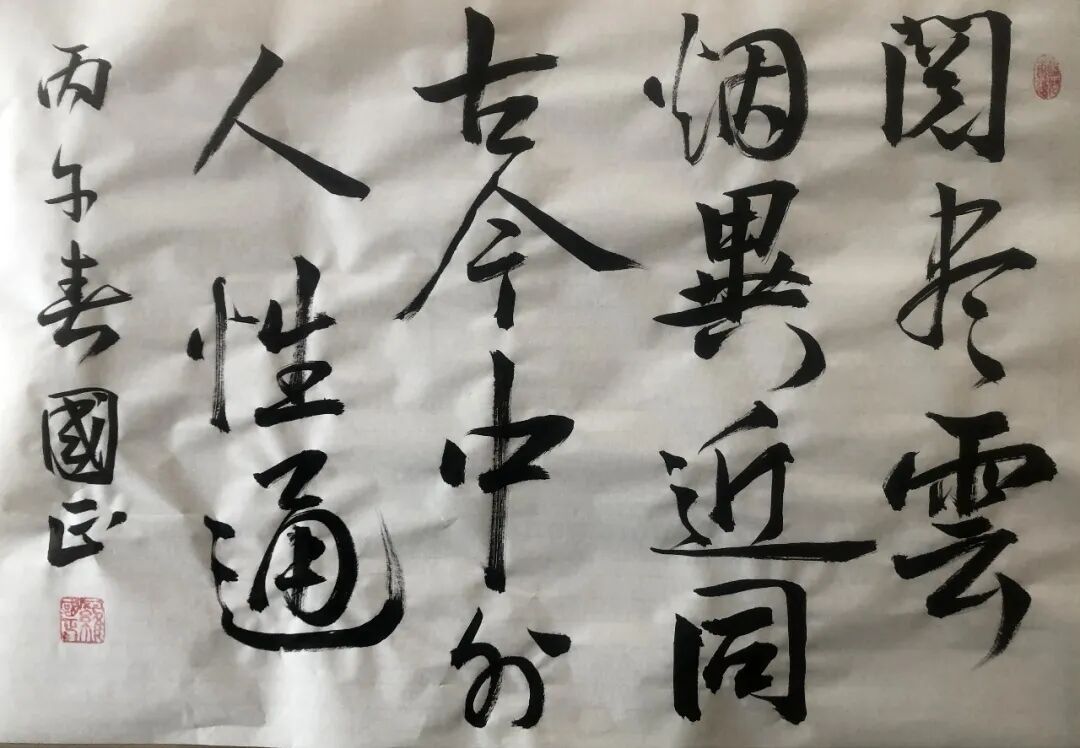 閱尽雲
烟異近同
古今中外
人性通
丙午春國正